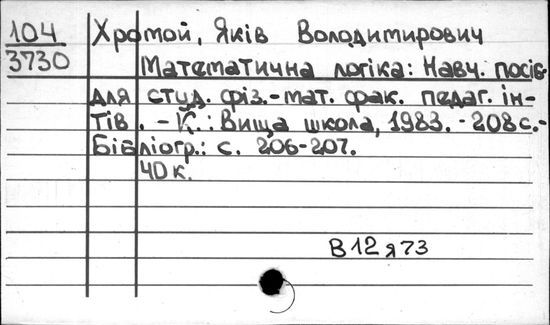 104 Хромой, Яків Володимирович
3730 Математична логіка: Навч. посіб.
для студ. фіз.-мат. фак. педаг. ін-
тів. - К.: Вища школа, 1983. - 208 с. -
Бібліогр.: с. 206-207.
40 к.
В12я73